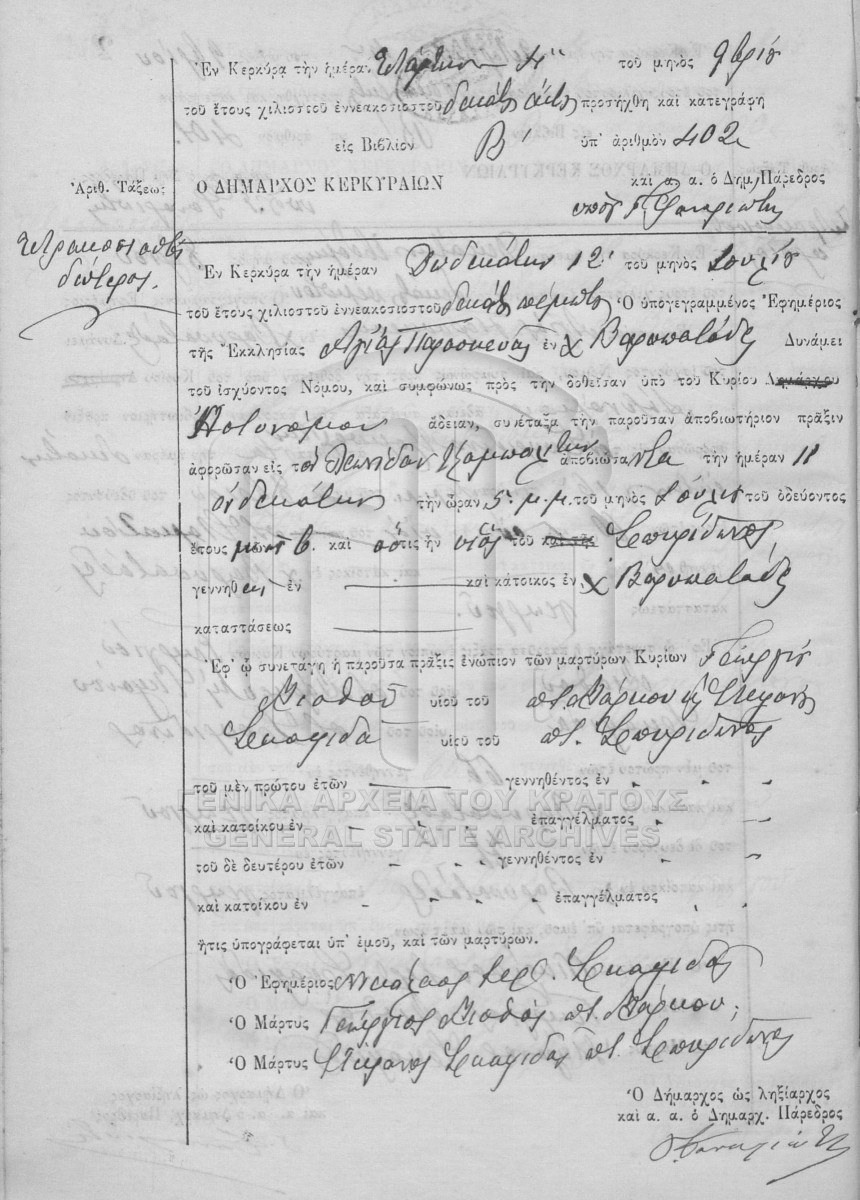 Ἐν Κερκύρᾳ τὴν ἡμέραν Τετάρτην 4 τοῦ μηνὸς 9βρίου
τοῦ ἔτους χιλιοστοῦ ἐννεακοσιοστοῦ δεκάτου ἕκτου προσήχθη καὶ κατεγράφη
εἰς Βιβλίον Β' ὑπ' ἀριθμὸν 402
Ἀριθ. Τάξεως Ο ΔΗΜΑΡΧΟΣ ΚΕΡΚΥΡΑΙΩΝ καὶ α. α. ὁ Δημ. Πάρεδρος
Τετρακοσιοστὸς
δεύτερος.
Ἐν Κερκύρᾳ τὴν ἡμέραν Δωδεκάτην 12 τοῦ μηνὸς Ἰουλίου
τοῦ ἔτους χιλιοστοῦ ἐννεακοσιοστοῦ δεκάτου πέμπτου Ὁ ὑπογεγραμμένος Ἐφημέριος
τῆς Ἐκκλησίας Ἁγίας Παρασκευῆς ἐν χ Βαρυπατάδες Δυνάμει
τοῦ ἰσχύοντος Νόμου, καὶ συμφώνως πρὸς τὴν δοθεῖσαν ὑπὸ τοῦ Κυρίου Δημάρχου
Ἀστυνόμου ἄδειαν, συνέταξα τὴν παροῦσαν ἀποβιωτήριον πρᾶξιν
ἀφορῶσαν εἰς τὸν Λεωνίδαν ἀποβιώσαντα τὴν ἡμέραν 11
ἑνδεκάτην τὴν ὥραν 5 μ.μ. τοῦ μηνὸς Ἰουλίου τοῦ ὁδεύοντος
ἔτους καὶ οὗτις ἦν υἱὸς τοῦ καὶ τῆς Σπυρίδωνος
γεννηθεὶς ἐν καὶ κάτοικος ἐν χ Βαρυπατάδες
καταστάσεως
Ἐφ' ᾧ συνετάγη ἡ παροῦσα πρᾶξις ἐνώπιον τῶν μαρτύρων Κυρίων Γεωργίου
υἱοῦ τοῦ ποτ. Μάρκου καὶ Στεφάνου
Σκαφιδᾶ υἱοῦ τοῦ ποτ. Σπυρίδωνος
τοῦ μὲν πρώτου ἐτῶν γεννηθέντος ἐν
ΓΕΝΙΚΑ ΑΡΧΕΙΑ ΤΟΥ ΚΡΑΤΟΥΣ
καὶ κατοίκου ἐν ἐπαγγέλματος
GENERAL STATE ARCHIVES
τοῦ δὲ δευτέρου ἐτῶν γεννηθέντος ἐν
καὶ κατοίκου ἐν ἐπαγγέλματος
ἥτις ὑπογράφεται ὑπ' ἐμοῦ, καὶ τῶν μαρτύρων.
Ὁ Ἐφημέριος Νικόλαος Ἱερ. Σκαφιδᾶς
Ὁ Μάρτυς Γεώργιος ποτ. Μάρκου
Ὁ Μάρτυς Στέφανος Σκαφιδᾶς ποτ. Σπυρίδωνος
Ὁ Δήμαρχος ὡς ληξίαρχος
καὶ α. α. ὁ Δημαρχ. Πάρεδρος